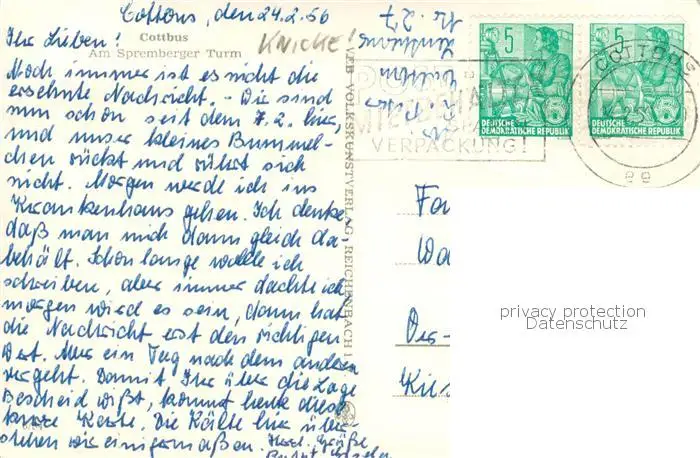 Cottbus, den 24.2.56
Ihr Lieben!
Cottbus
Am Spremberger Turm
KNICKE!
Noch immer ist es nicht die
ersehnte Nachricht. - Wir sind
nun schon seit dem 7.2. hier,
und unser kleines Bummel-
chen rückt und rührt sich
nicht. Morgen werde ich ins
Krankenhaus gehen. Ich denke,
daß man mich dann gleich da
behält. Schon lange wollte ich
schreiben, aber immer dachte ich
morgen wird es sein, dann hat
die Nachricht erst den richtigen
Wert. Aber ein Tag nach dem anderen
vergeht. Damit Ihr über die Lage
Bescheid wißt, kommt heute diese
kurze Karte. Die Kälte hier über
stehen wir einigermaßen. Herzl. Grüße
VEB VOLKSKUNSTVERLAG REICHENBACH I.
Nr. 27
5
DEUTSCHE
DEMOKRATISCHE REPUBLIK
5
DEUTSCHE
DEMOKRATISCHE REPUBLIK
VERPACKUNG!
COTTBUS
Fa
Wa
Kie
privacy protection
Datenschutz